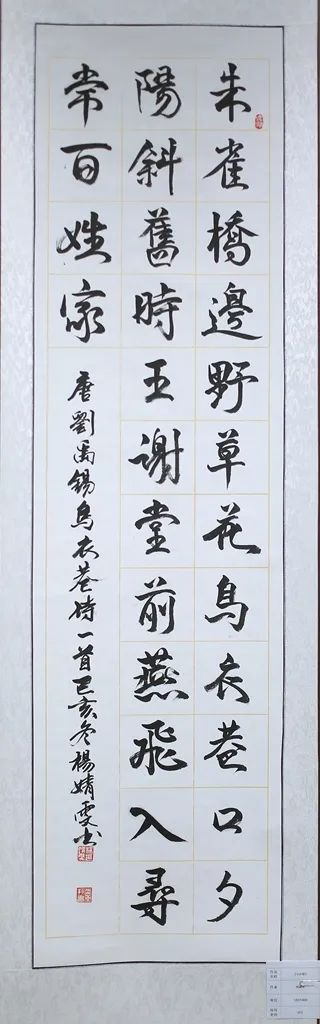 朱雀橋邊野草花烏衣巷口夕
陽斜舊時王謝堂前燕飛入尋
常百姓家
唐劉禹錫烏衣巷詩一首己亥冬楊婧雯书